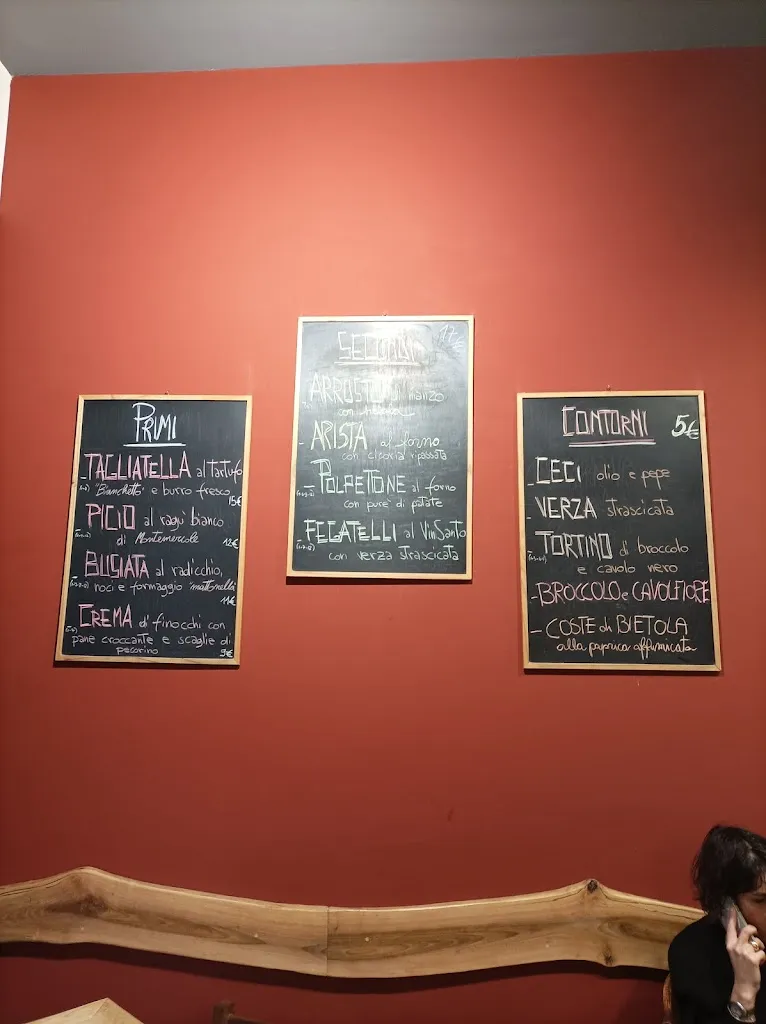 PRIMI
- TAGLIATELLA al tartufo
"Bianchetto" e burro fresco
15€
PICIO al ragù bianco
di Montemercole 12€
BUSIATA al radicchio,
noci e formaggio mattonella
11€
CREMA di finocchi con
pane croccante e scaglie di
pecorino 9€
SECONDI 17€
ARROSTO di manzo
con
- ARISTA al forno
con cicoria ripassata
POLPETONE al forno
con pure' di patate
FEGATELLI al VinSanto
con verza strascicata
CONTORNI 5€
- CECI olio e pepe
- VERZA strascicata
TORTINO di broccolo
e cavolo nero
- BROCCOLO e CAVOLFIORE
- COSTE di BIETOLA
alla paprica affumicata